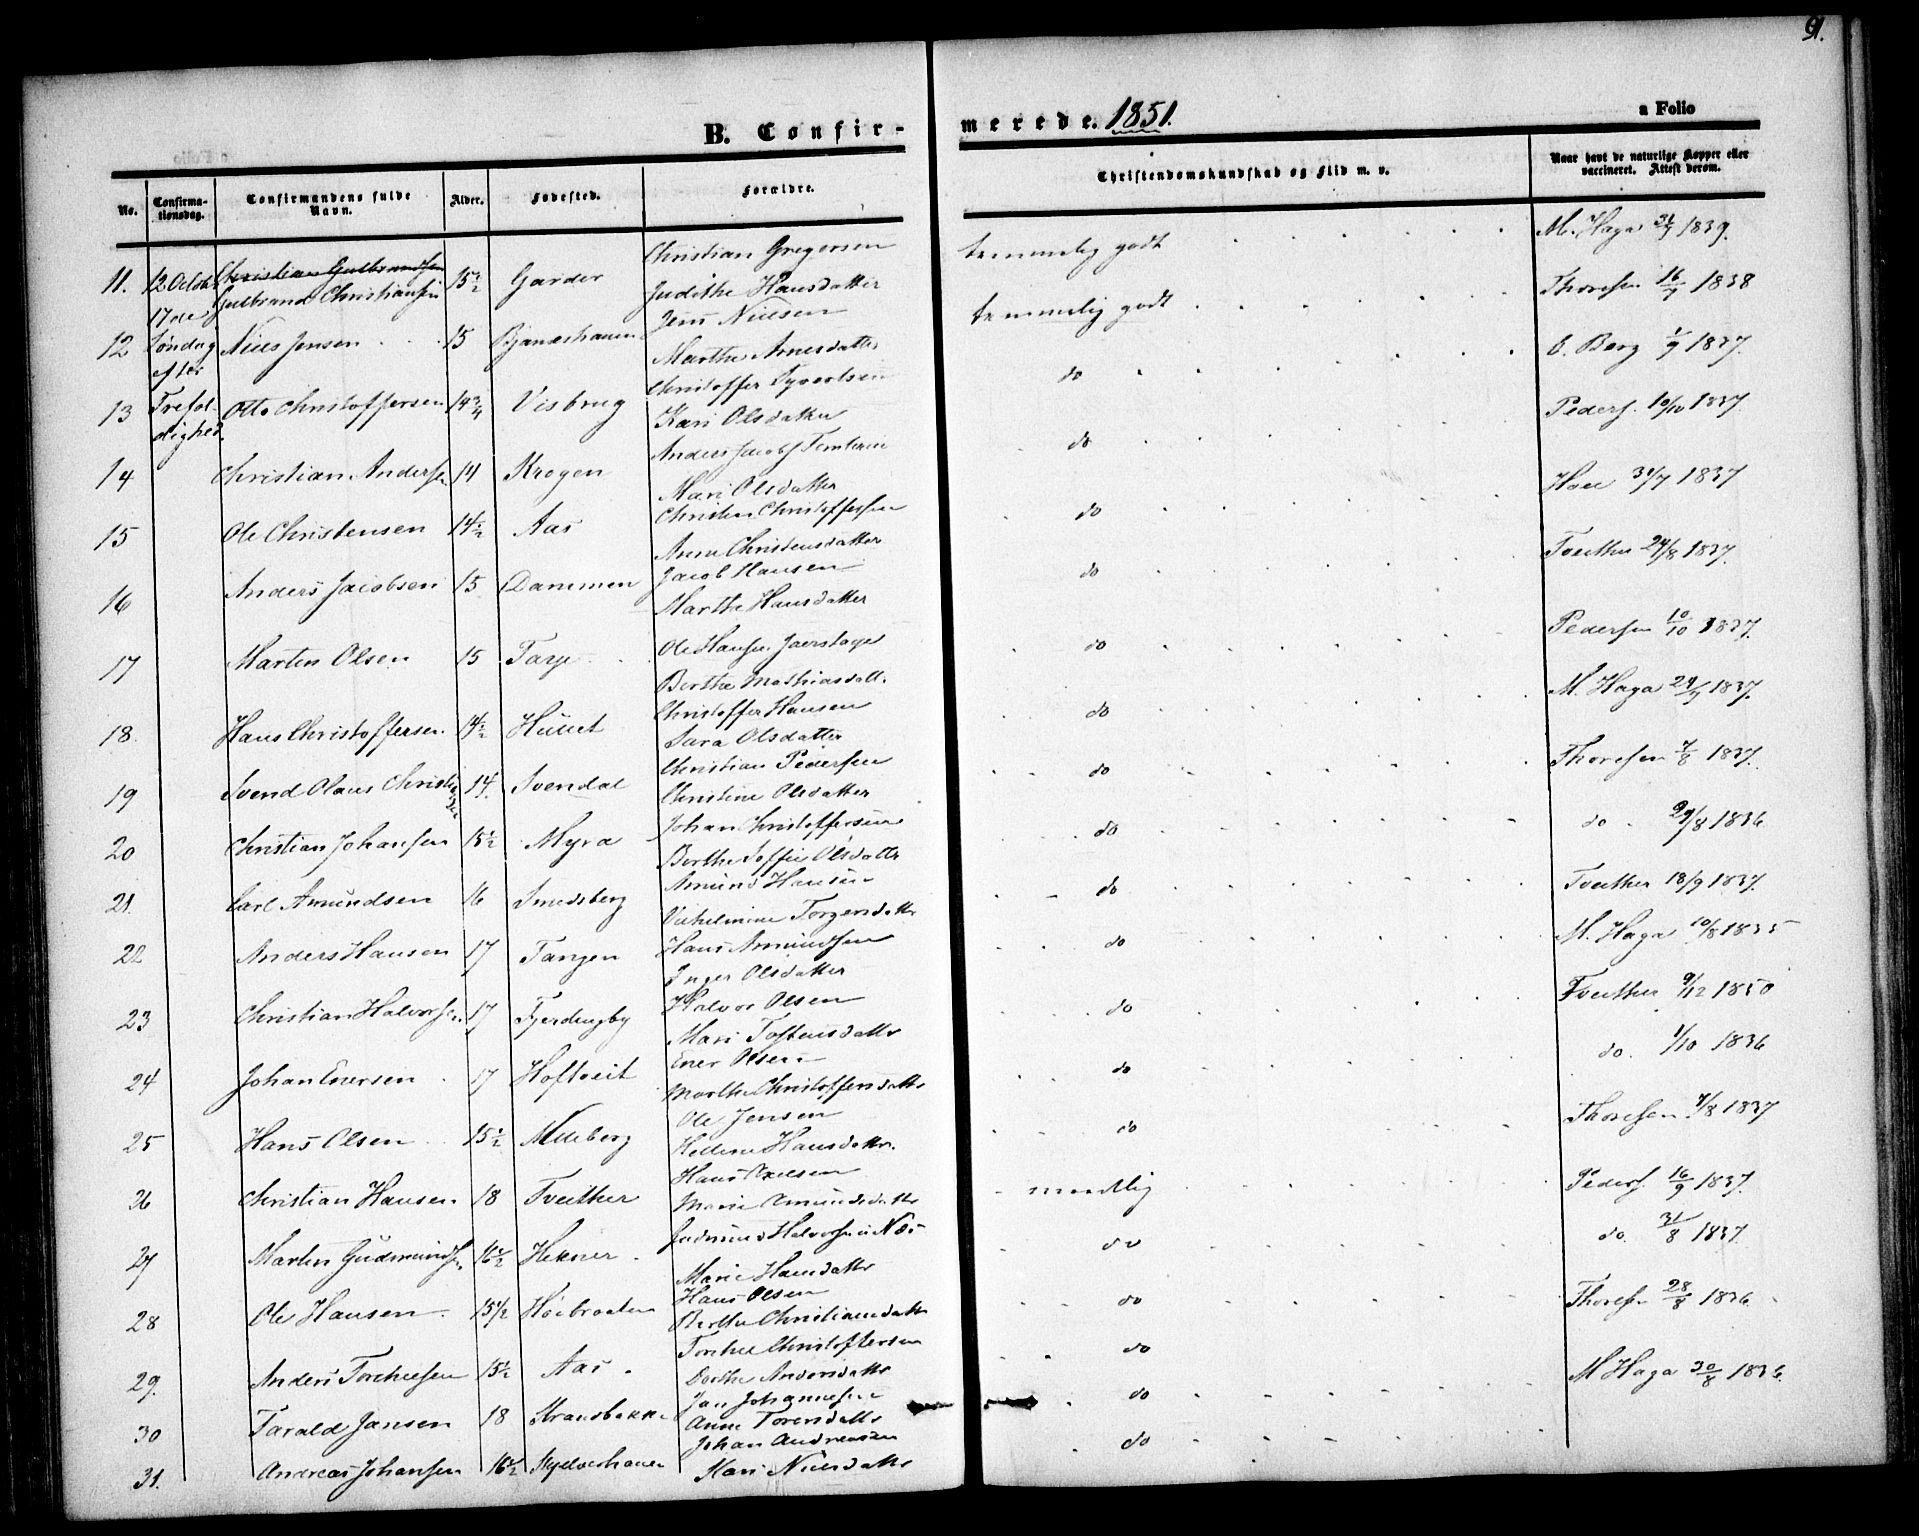 91.
B. Confir-
merede. 1851.
a Folio
No. Confirmationsdag. Confirmandens fulde Navn. Alder. Fødested. Forældre. Christendomskundskab og Flid m. v. Naar havt de naturlige Kopper eller vaccineret. Attest derom.
11. 12 Octbr Christian Gulbrandsen 15 1/2 Garder Christian Gregersen temmelig godt M. Haga 1839.
17de Gulbrand Christiansen Judithe Hansdatter
12 Søndag Niels Jensen 15 Jens Nielsen temmelig godt Thoresen 16/7 1838
efter Marthe Arnesdatter
13 Trefol- Otto Christoffersen 14 3/4 Visbrug Christoffer do C. Berg 1/9 1837.
dighed. Kari Olsdatter
14 Christian Andersen 14 Krogen Anders Jacobs do Peders. 10/10 1837
Mari Olsdatter
15 Ole Christensen 14 1/2 Aas Christen Christoffersen do 31/7 1837
Anne Christensdatter
16 Anders Jacobsen 15 Dammen Jacob Hansen do Tvether 24/8 1837.
Marthe Hansdatter
17 Martin Olsen 15 Ole Hansen do Pedersen 10/10 1837.
Berthe Mathiasdatt.
18. Hans Christoffersen 14 1/2 Christoffer Hansen do M. Haga 1837.
Sara Olsdatter
19 Svend Olaus Christiansen 14. Svendal Christian Pedersen do Thoresen 7/8 1837.
Christine Olsdatter
20 Christian Johansen 15 1/2 Myra Johan Christoffersen do do 29/8 1836
Berthe Soffie Olsdattr
21. Carl Amundsen 16 Smedsberg Amund Hansen do Tvether 18/9 1837.
Vilhelmine Torgersdattr
22 Anders Hansen 17 Tangen Hans Amundsen do M. Haga 10/8 1835
Inger Olsdatter
23 Christian Halvorsen 17 Fjerdingby Halvor Olsen do Tvether 9/12 1850
Mari Tostensdattr
24 Johan Enersen 17 Hoftveit Ener Olsen do do. 1/10 1836
Marthe Christoffersdattr
25 Hans Olsen 15 1/2 Ole Jensen do Thoresen 7/8 1837
Hellene Hansdattr.
26 Christian Hansen 18 Tveither Hans Axelsen maadelig Peders. 16/9 1837.
Marie Amundsdattr
27 Martin Gudmundsen 16 1/2 Gudmund Halvorsen Næs do do. 31/8 1837.
Marie Hansdattr
28 Ole Hansen 15 1/2 Høibraaten Hans Olsen do Thoresen 28/8 1836
Berthe Christiansdattr
29. Anders Torchelsen 15 1/2 Aas Torchel Christoffersen do M Haga 30/8 1836
Dorthe Andersdattr
30 Tarald Jansen 18 Strandbakke Jan Johannesen do
Anne Torersdattr
31. Andreas Johansen 16 1/2 Johan Andreasen do
Kari Nielsdattr